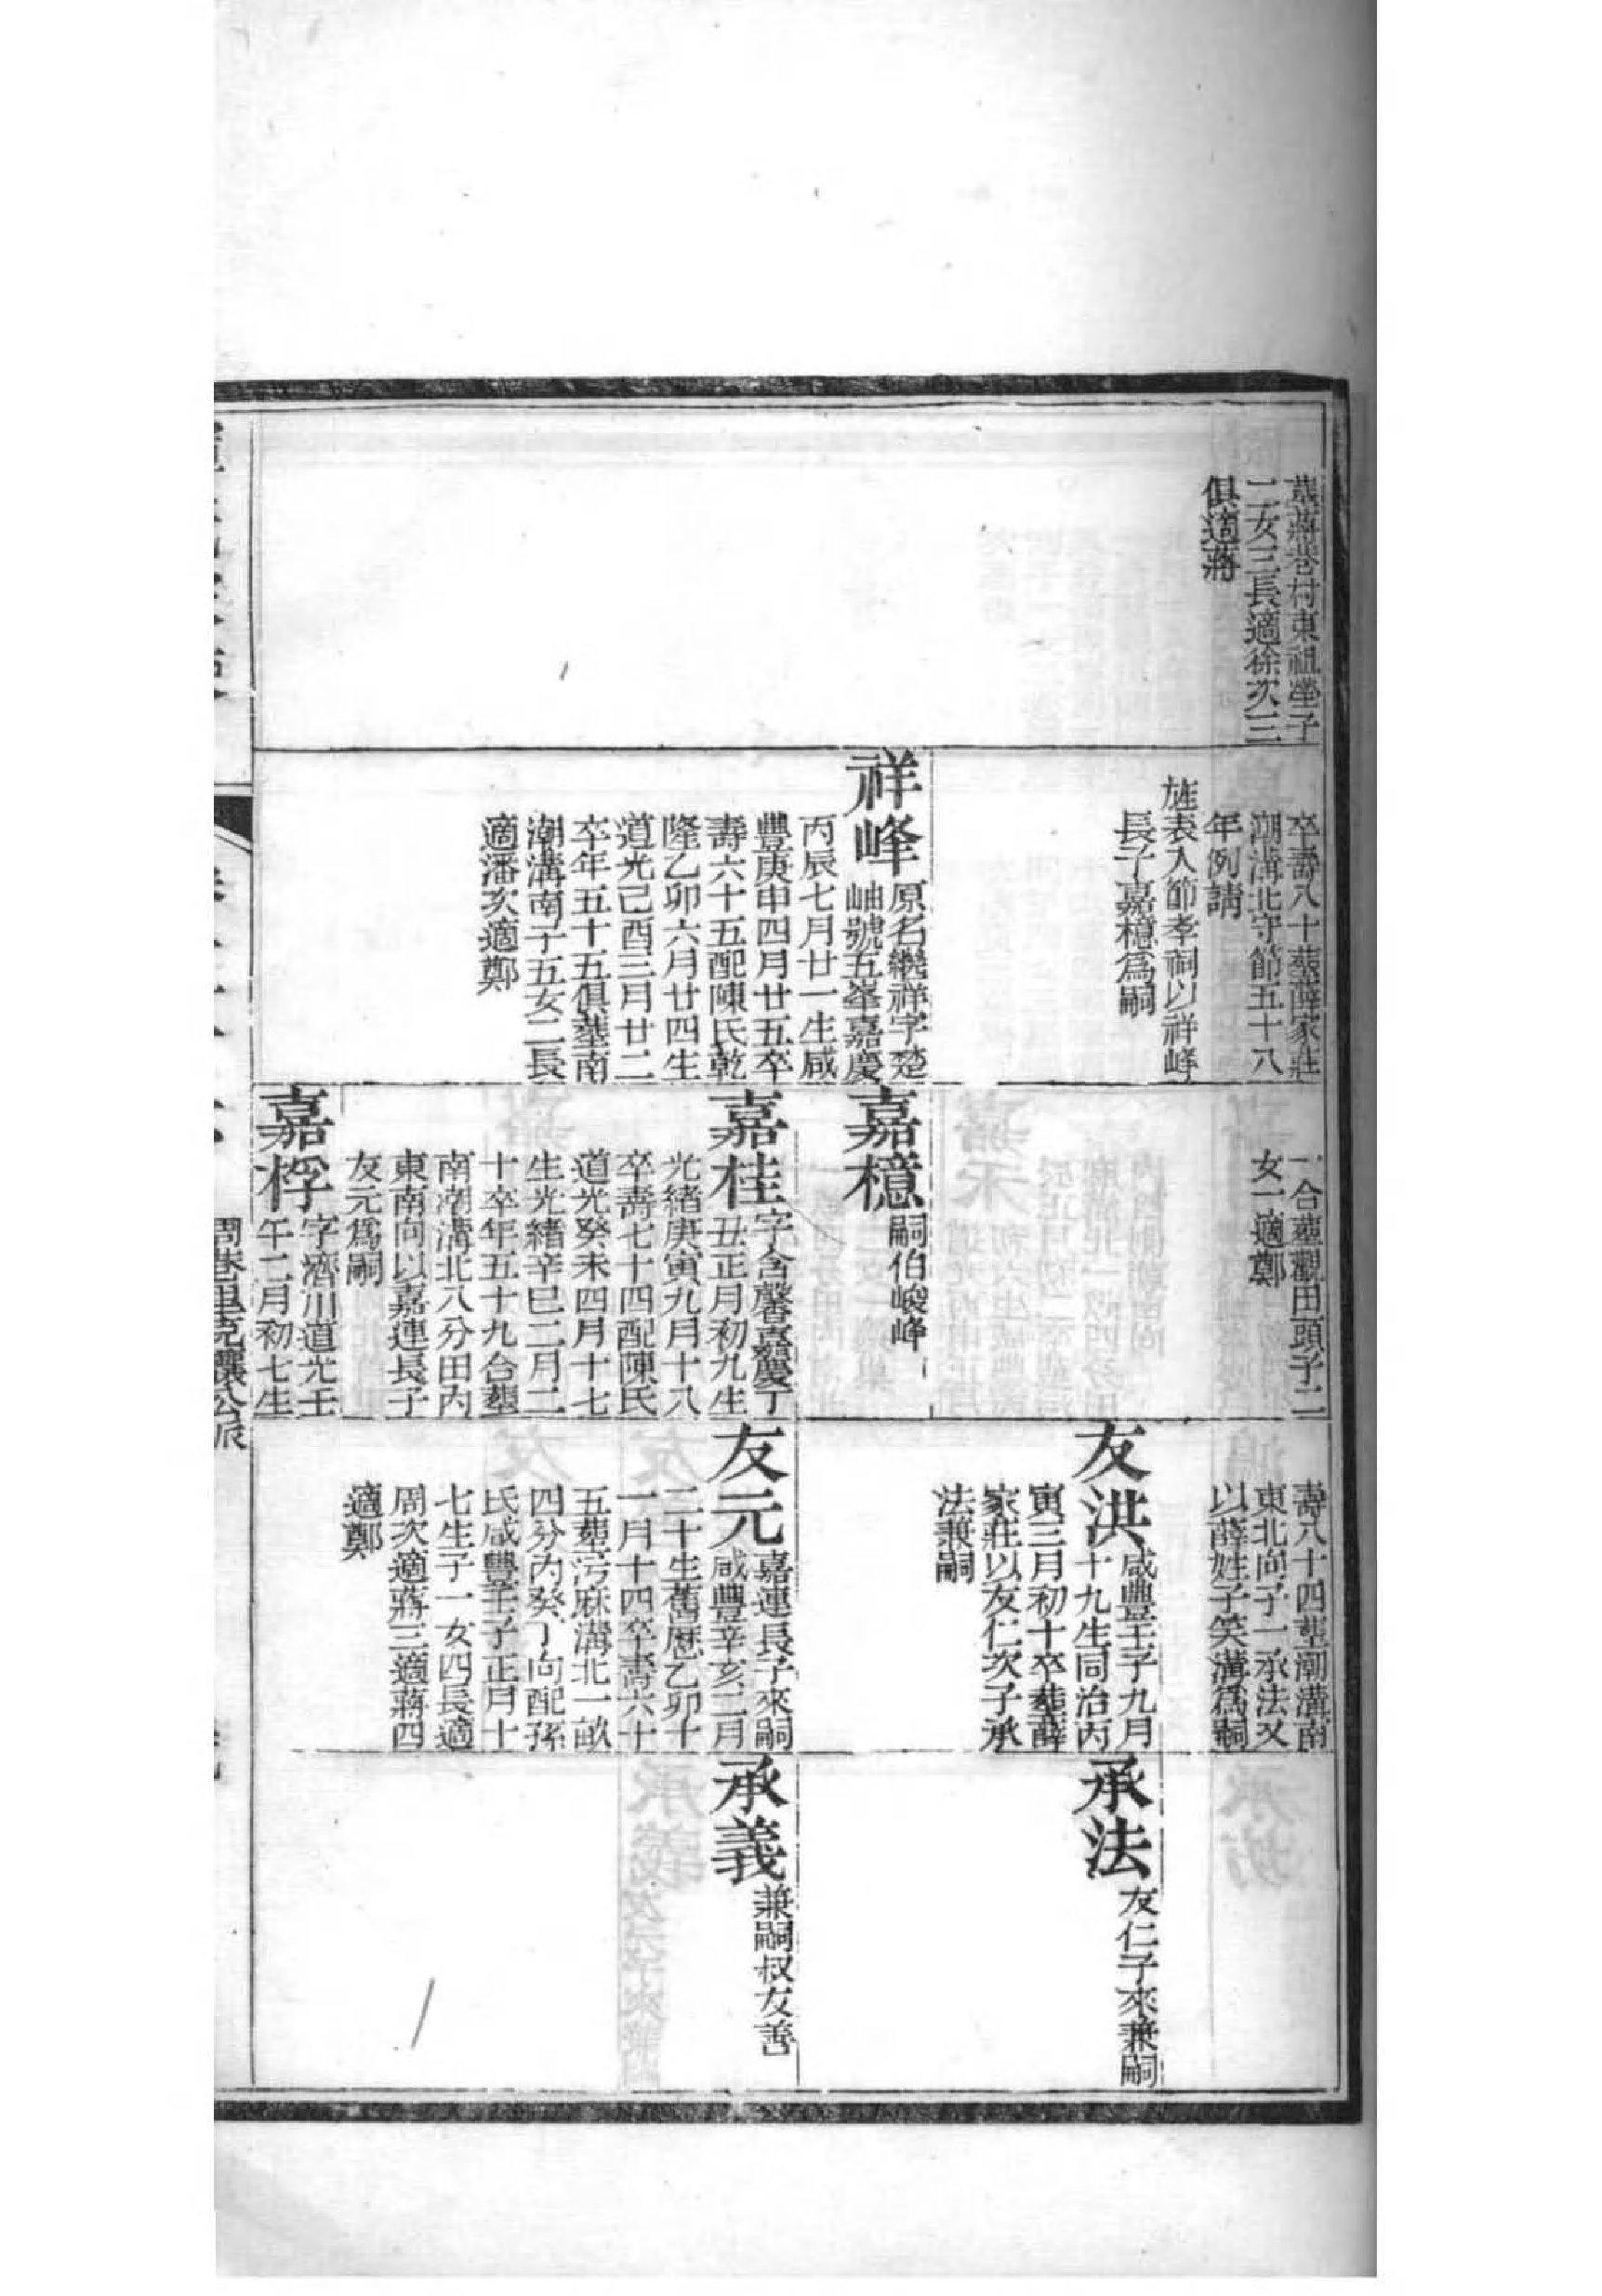 葬蔣巷村東祖塋子
二女三長適徐次三
俱適蔣
卒壽八十葬薛家莊
潮溝北守節五十八
年例請
旌表入節孝祠以祥峰
長子嘉檍爲嗣
祥峰
原名繞祥字楚
岫號五峯嘉慶
丙辰七月廿一生咸
豐庚申四月廿五卒
壽六十五配陳氏乾
隆乙卯六月廿四生
道光己酉三月廿二
卒年五十五俱葬南
潮溝南子五女二長
適潘次適鄭
一合葬觀田頭子二
女一適鄭
嘉檍
嗣伯峻峰
嘉桂
字含馨嘉慶丁
丑正月初九生
光緒庚寅九月十八
卒壽七十四配陳氏
道光癸未四月十七
生光緒辛巳二月二
十卒年五十九合葬
南潮溝北八分田內
東南向以嘉連長子
友元爲嗣
嘉桴
字濟川道光壬
午二月初七生
壽八十四葬潮溝南
東北向子一承法又
以薛姓子笑溝爲嗣
友洪
咸豐壬子九月
十九生同治丙
寅三月初十卒葬薛
家莊以友仁次子承
法兼嗣
友元
嘉連長子來嗣
咸豐辛亥二月
二十生舊歷乙卯十
一月十四卒壽六十
五葬污麻溝北一畝
四分內癸丁向配孫
氏咸豐壬子正月十
七生子一女四長適
周次適蔣三適蔣四
適鄭
承法
友仁子來兼嗣
承義
兼嗣叔友善